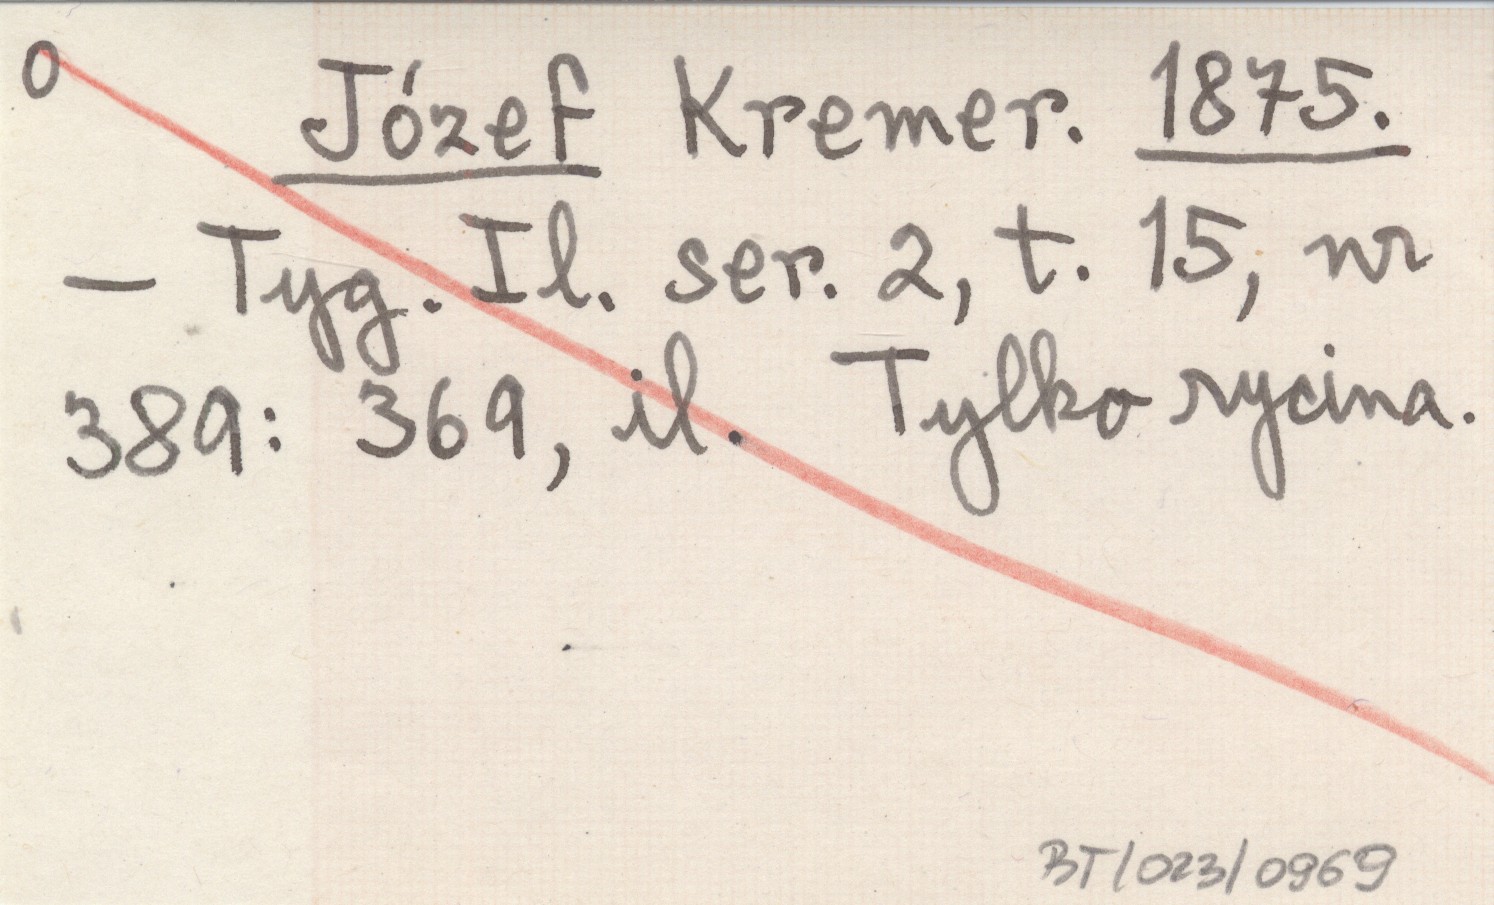 0
Józef Kremer. 1875.
— Tyg. Il. ser. 2, t. 15, nr
389: 369, il. Tylko rycina.
BT/023/0969